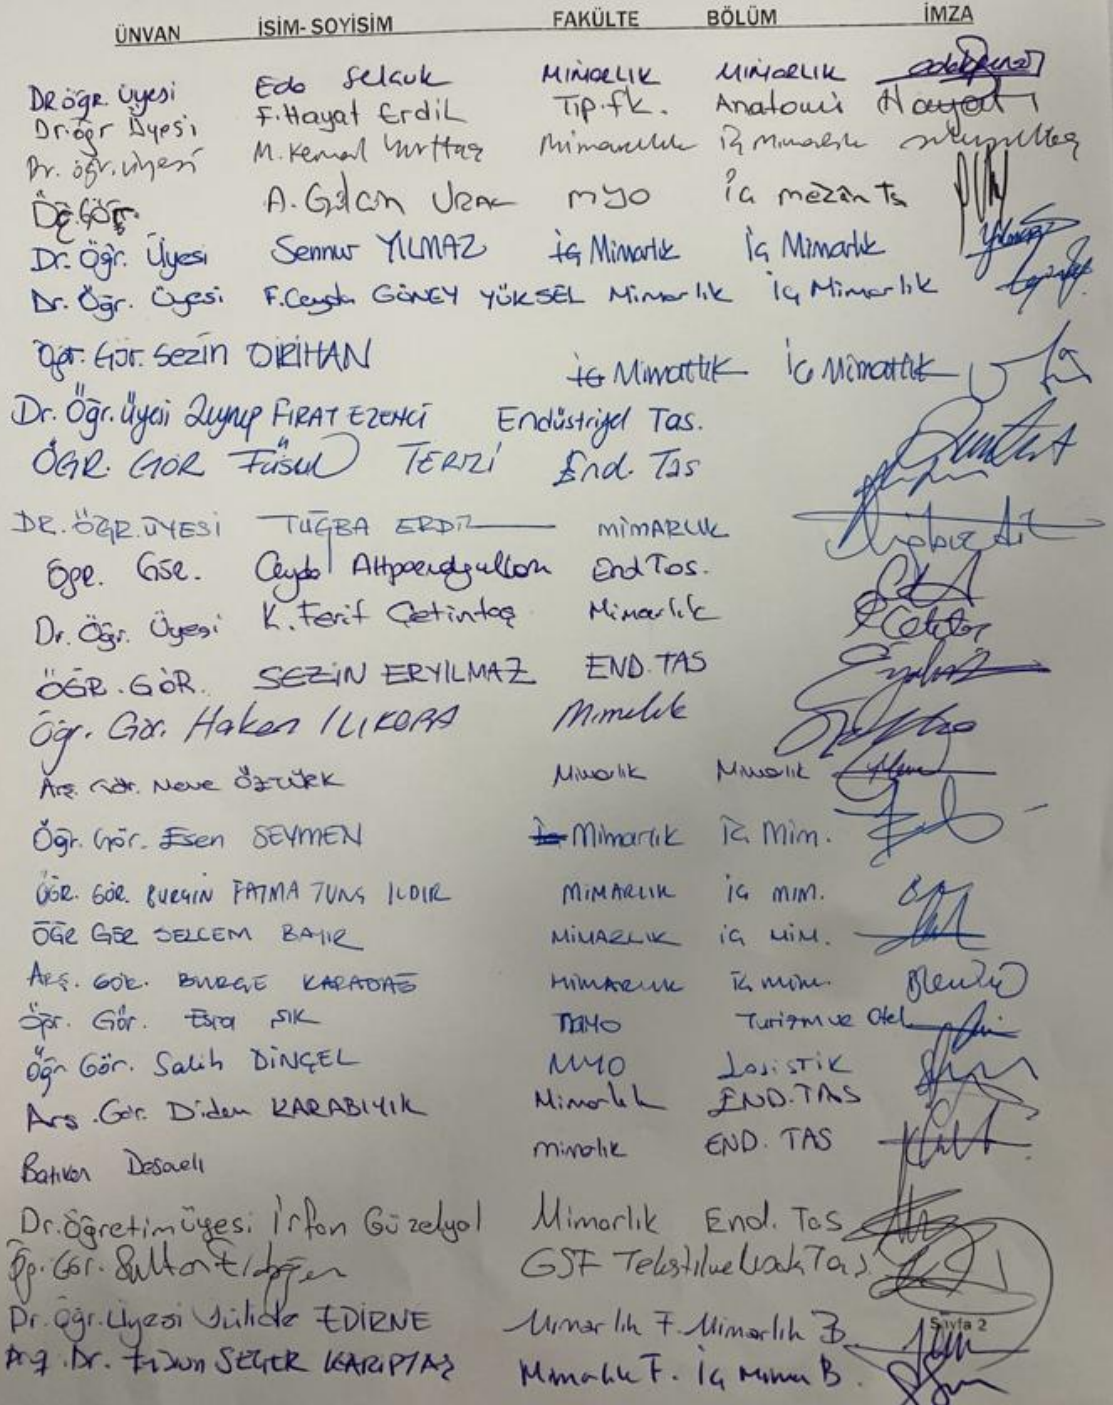 ÜNVAN İSİM-SOYİSİM FAKÜLTE BÖLÜM İMZA
DR öğr. üyesi Eda Selçuk MİMARLIK MİMARLIK
Dr. öğr Üyesi F. Hayat Erdil Tıp. fk. Anatomi Hayat
Dr. öğr. üyesi M. Kemal Yurttaş mimarlık iç mimarlık
A. Gülçin URAL MYO İç mezan Ts
Dr. Öğr. Üyesi Sennur YILMAZ İç Mimarlık İç Mimarlık
Dr. Öğr. Üyesi F. Ceyda GÜNEY YÜKSEL Mimarlık İç Mimarlık
Öğr. Gör. Sezin DİRİHAN İç Mimarlık İç Mimarlık
Dr. Öğr. Üyesi Zeynep FIRAT EZENCİ Endüstriyel Tas.
ÖGR. GÖR Füsun TERZİ End. Tas
DR. ÖĞR. ÜYESİ TUĞBA ERDİL MİMARLIK
Öğr. Gör. Ceyda End Tas.
Dr. Öğr. Üyesi K. Ferit Çetintaş Mimarlık
ÖĞR. GÖR. SEZİN ERYILMAZ END. TAS
Öğr. Gör. Hakan Mimarlık
Arş. Gör. Merve ÖZTÜRK Mimarlık Mimarlık
Öğr. Gör. Esen SEYMEN Mimarlık İç Mim.
ÖĞR. GÖR. BURÇİN FATMA TUNÇ ILDIR MİMARLIK İÇ MİM.
ÖĞR GÖR SELCEM BAYIR MİMARLIK İÇ MİM.
ARŞ. GÖR. BURGE KARADAĞ MİMARLIK İÇ mim.
Öğr. Gör. Esra ŞIK Turizm ve Otel
Öğr Gör. Salih DİNÇEL MYO Lojistik
Arş. Gör. Didem KARABIYIK Mimarlık END. TAS
Batıkan mimarlık END. TAS
Dr. öğretim üyesi İrfan Güzelyol Mimarlık End. Tas
Öğ. Gör. Sultan GSF Tekstil ve Moda Tas.
Dr. Öğr. Üyesi Jülide EDİRNE Mimarlık F. Mimarlık B
Sayfa 2
Dr. SEÇER KARİPTAŞ Mimarlık F. İç Mima B.